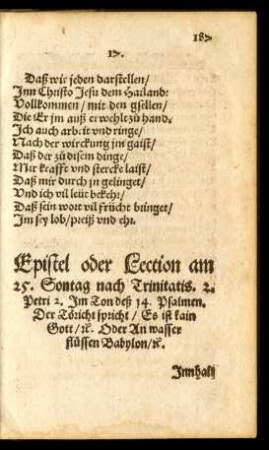 187
17.
Daß wir jeden darstellen/
Inn Christo Jesu dem Hailand:
Vollkommen/ mit den gsellen/
Die Er jm auß erwehlt zu hand.
Ich auch arbeit vnd ringe/
Nach der wirckung jm gaist/
Daß der zů disem dinge/
Mir krafft vnd stercke laist/
Daß mir durch jn gelinget/
Vnd ich vil leut bekehr/
Daß sein wort vil frücht bringet/
Im sey lob/ preiß vnd ehr.
Epistel oder Lection am
25. Sontag nach Trinitatis. 2.
Petri 2. Im Ton deß 14. Psalmen.
Der Töricht spricht/ Es ist kain
Gott/ ꝛc. Oder An wasser
flüssen Babylon/ ꝛc.
Innhalt